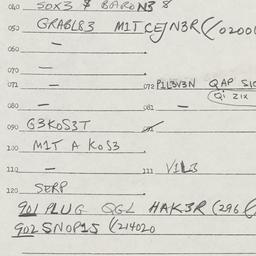 040 SOX3 $ BARON3 8
050 GRABL83 MITCEJN3R (/02001
060 —
070 —
071 — 072 P1L3V3N QAP SIC
(Qi ZIX
080 — 081 —
090 G3KOS3T 091
100 MIT A KOS3
110 — 111 VIL3
120 SERP
901 PLUG QGL HAK3R (296 (
902 SNOP1S (/214020